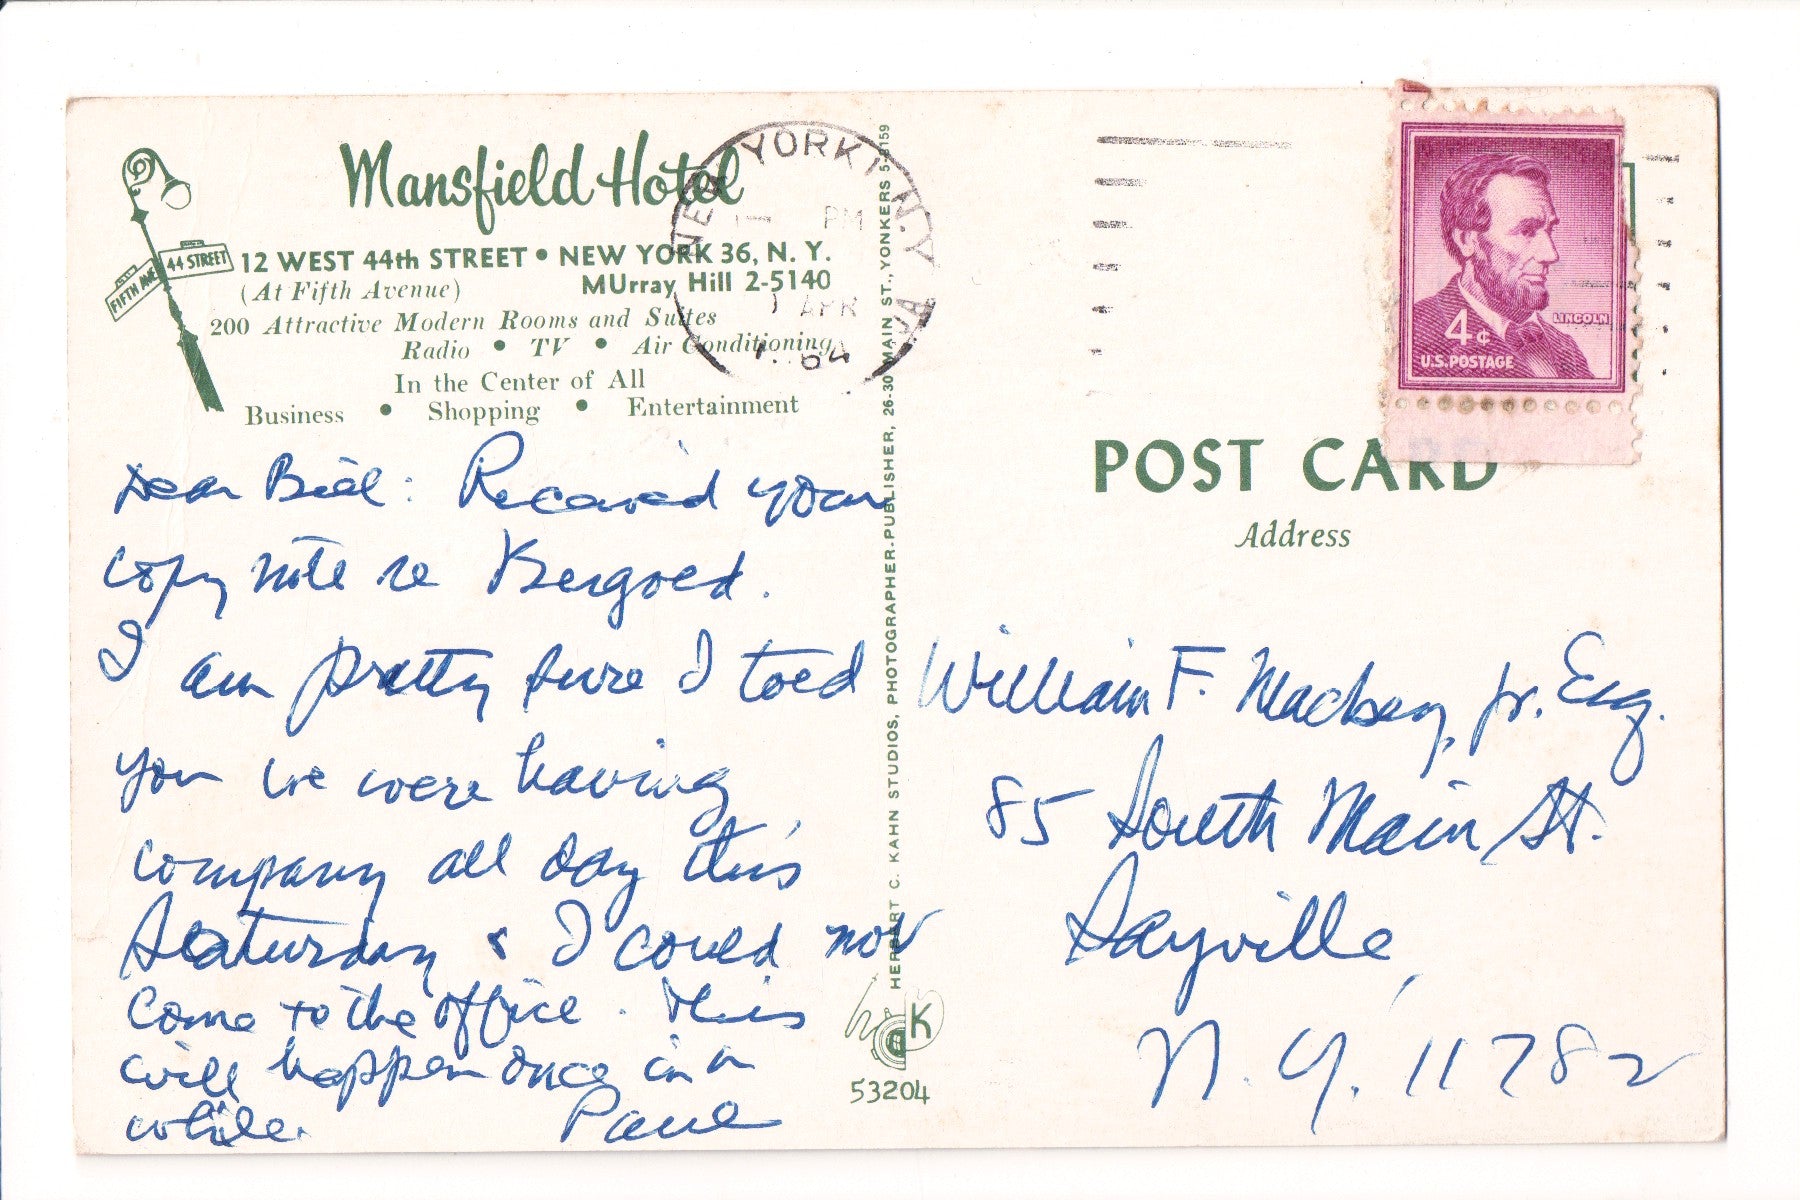 Mansfield Hotel
12 WEST 44th STREET • NEW YORK 36, N. Y.
(At Fifth Avenue) MUrray Hill 2-5140
200 Attractive Modern Rooms and Suites
Radio • TV • Air Conditioning
In the Center of All
Business • Shopping • Entertainment
FIFTH AVE
44 STREET
NEW YORK, N.Y.
PM
APR
64
LINCOLN
4¢
U.S. POSTAGE
POST CARD
Address
Dear Bill: Received your
copy note re
I am pretty sure I told
you we were having
company all day this
Saturday & I could not
come to the office. This
will happen once in a
while. Paul
HERBERT C. KAHN STUDIOS, PHOTOGRAPHER-PUBLISHER, 26-30 MAIN ST., YONKERS 5-8159
K
53204
William F. Mackey, Jr. Esq.
85 South Main St.
Sayville,
N. Y. 11782